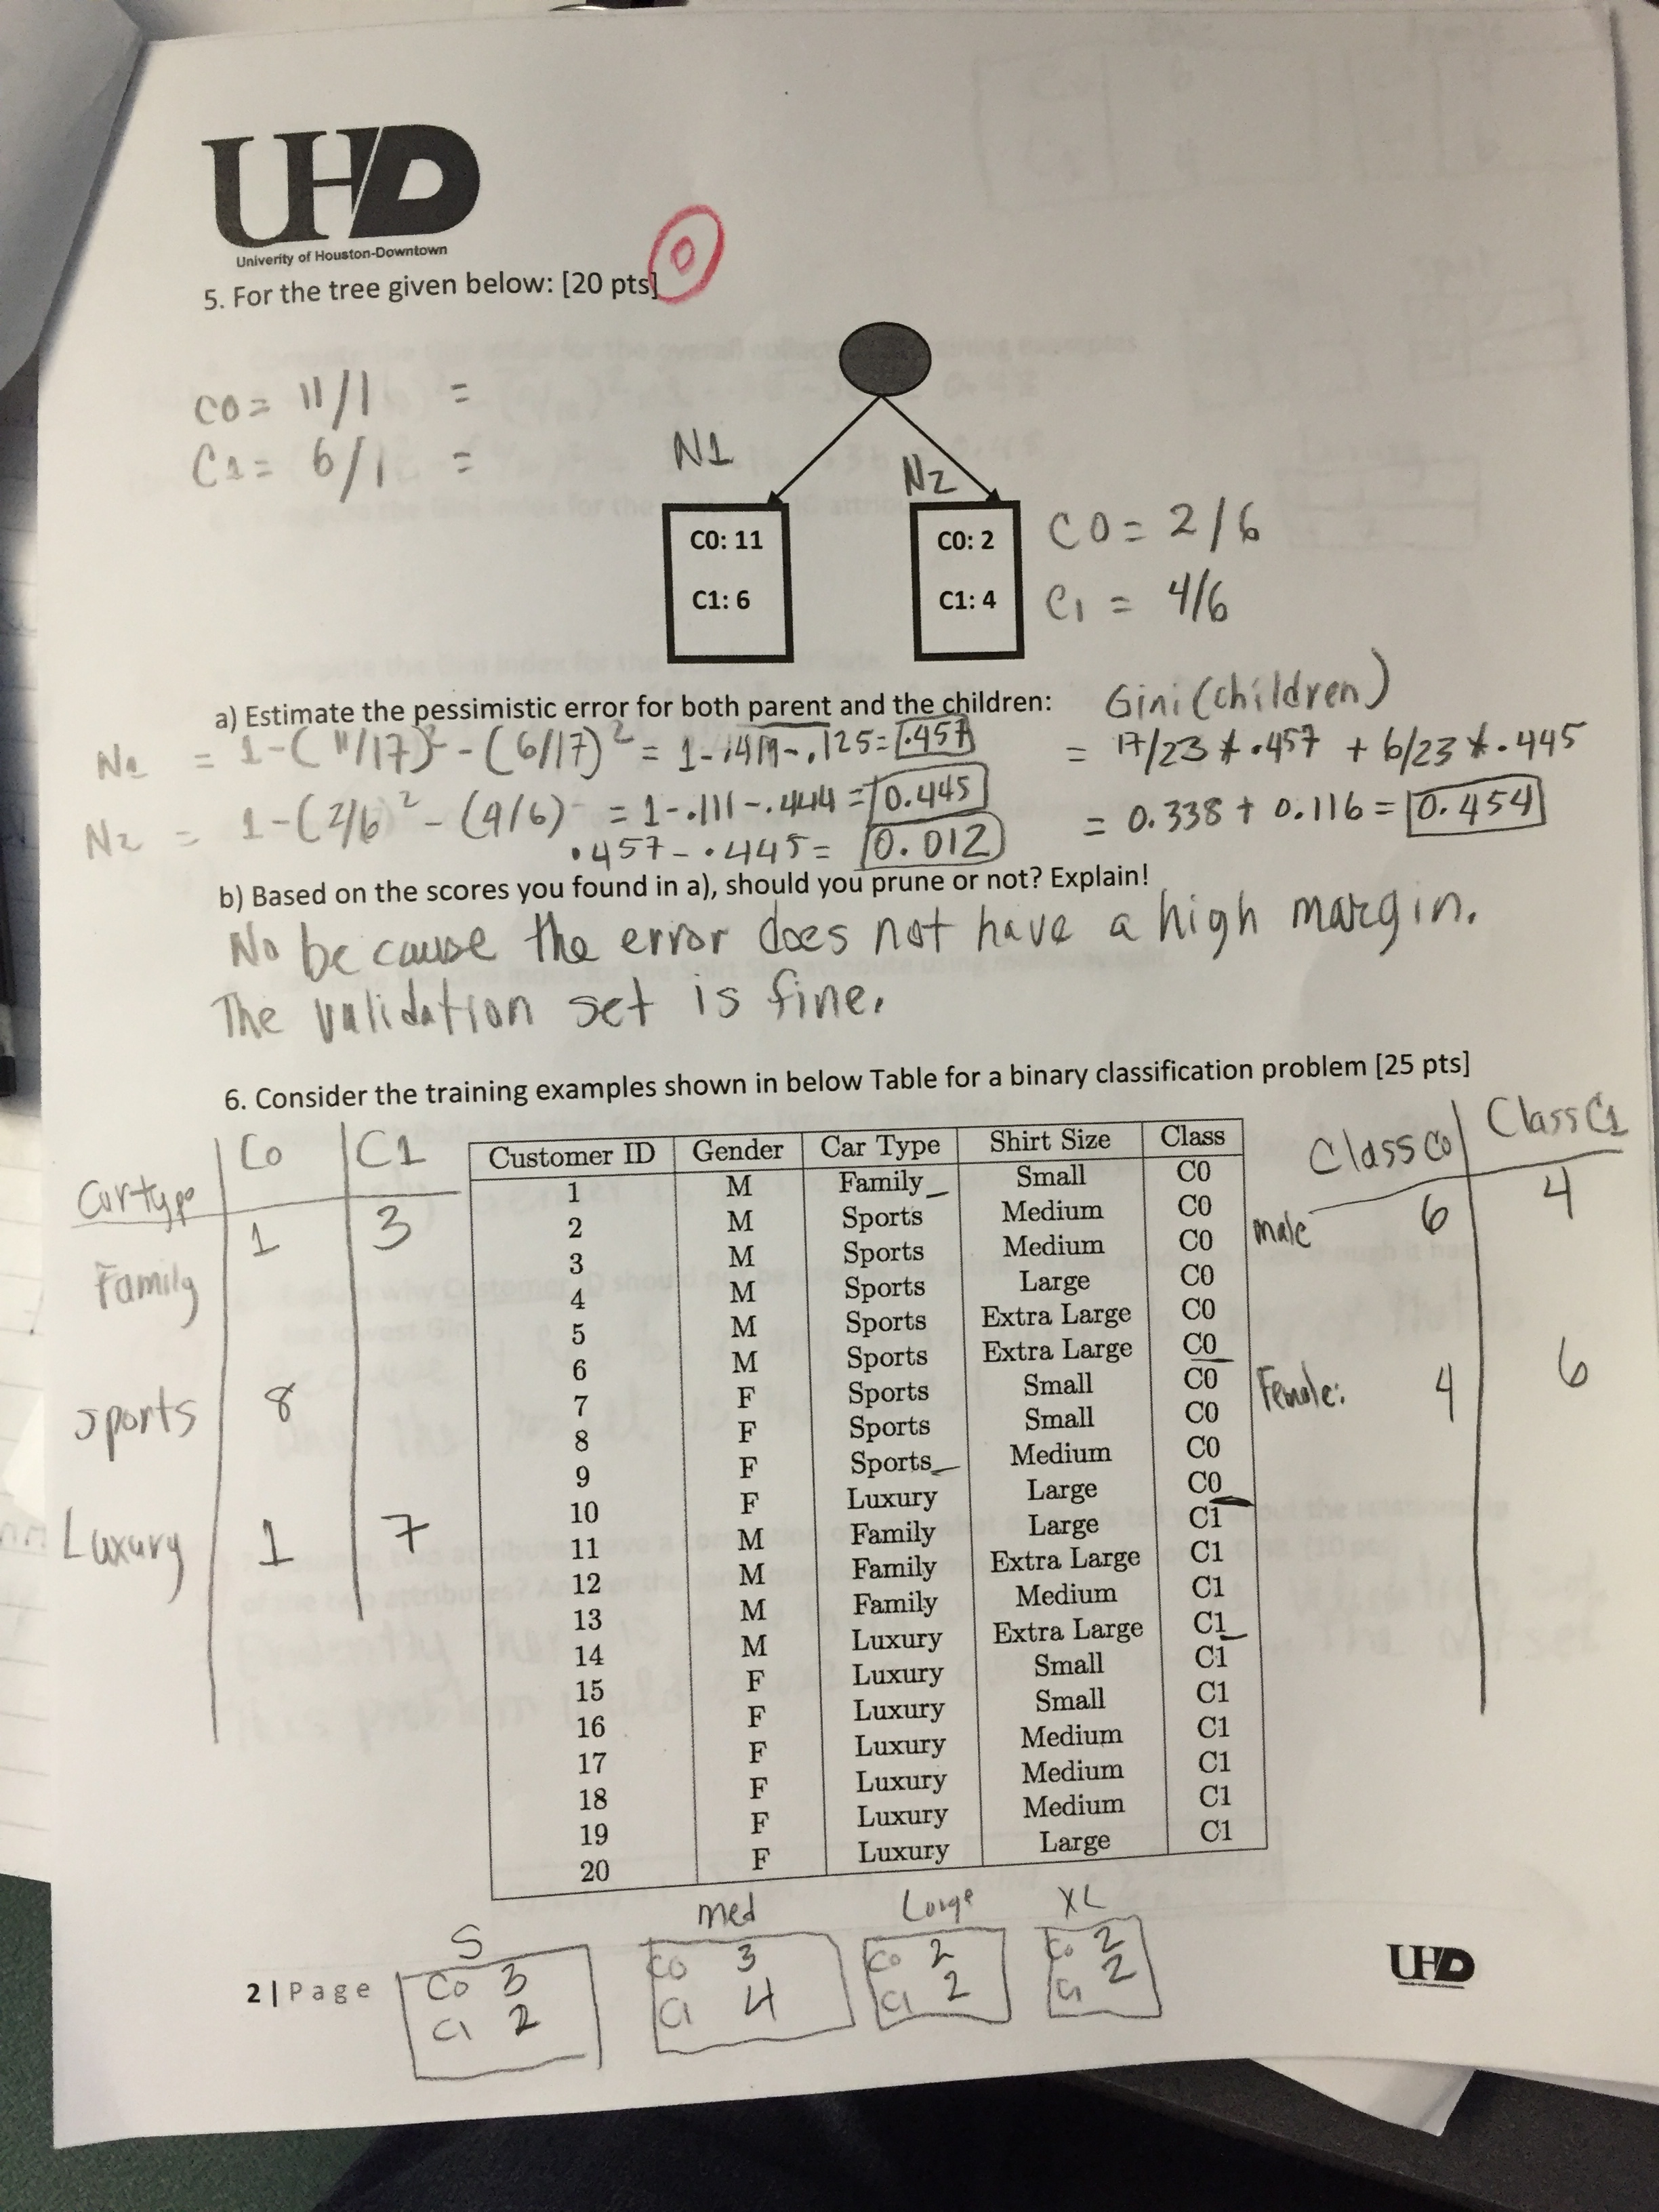 UHD
Univerity of Houston-Downtown
0
5. For the tree given below: [20 pts]
C0 = 11/1 =
C1 = 6/1 =
N1
N2
C0: 11
C1: 6
C0: 2
C1: 4
C0 = 2/6
C1 = 4/6
a) Estimate the pessimistic error for both parent and the children:
N1 = 1-(11/17)² - (6/17)² = 1-.419-.125= .457
N2 = 1-(2/6)² - (4/6) = 1-.111-.444 = 0.445
.457-.445= 0.012
Gini (children)
= 17/23 * .457 + 6/23 * .445
= 0.338 + 0.116 = 0.454
b) Based on the scores you found in a), should you prune or not? Explain!
No because the error does not have a high margin.
The validation set is fine.
6. Consider the training examples shown in below Table for a binary classification problem [25 pts]
Cartype C0 C1
Family 1 3
Sports 8
Luxury 1 7
Customer ID Gender Car Type Shirt Size Class
1 M Family Small C0
2 M Sports Medium C0
3 M Sports Medium C0
4 M Sports Large C0
5 M Sports Extra Large C0
6 M Sports Extra Large C0
7 F Sports Small C0
8 F Sports Small C0
9 F Sports Medium C0
10 F Luxury Large C0
11 M Family Large C1
12 M Family Extra Large C1
13 M Family Medium C1
14 M Luxury Extra Large C1
15 F Luxury Small C1
16 F Luxury Small C1
17 F Luxury Medium C1
18 F Luxury Medium C1
19 F Luxury Medium C1
20 F Luxury Large C1
Class C0 Class C1
male 6 4
Female: 4 6
S
C0 3
C1 2
med
C0 3
C1 4
Large
C0 2
C1 2
XL
C0 2
C1 2
2 | Page
UHD